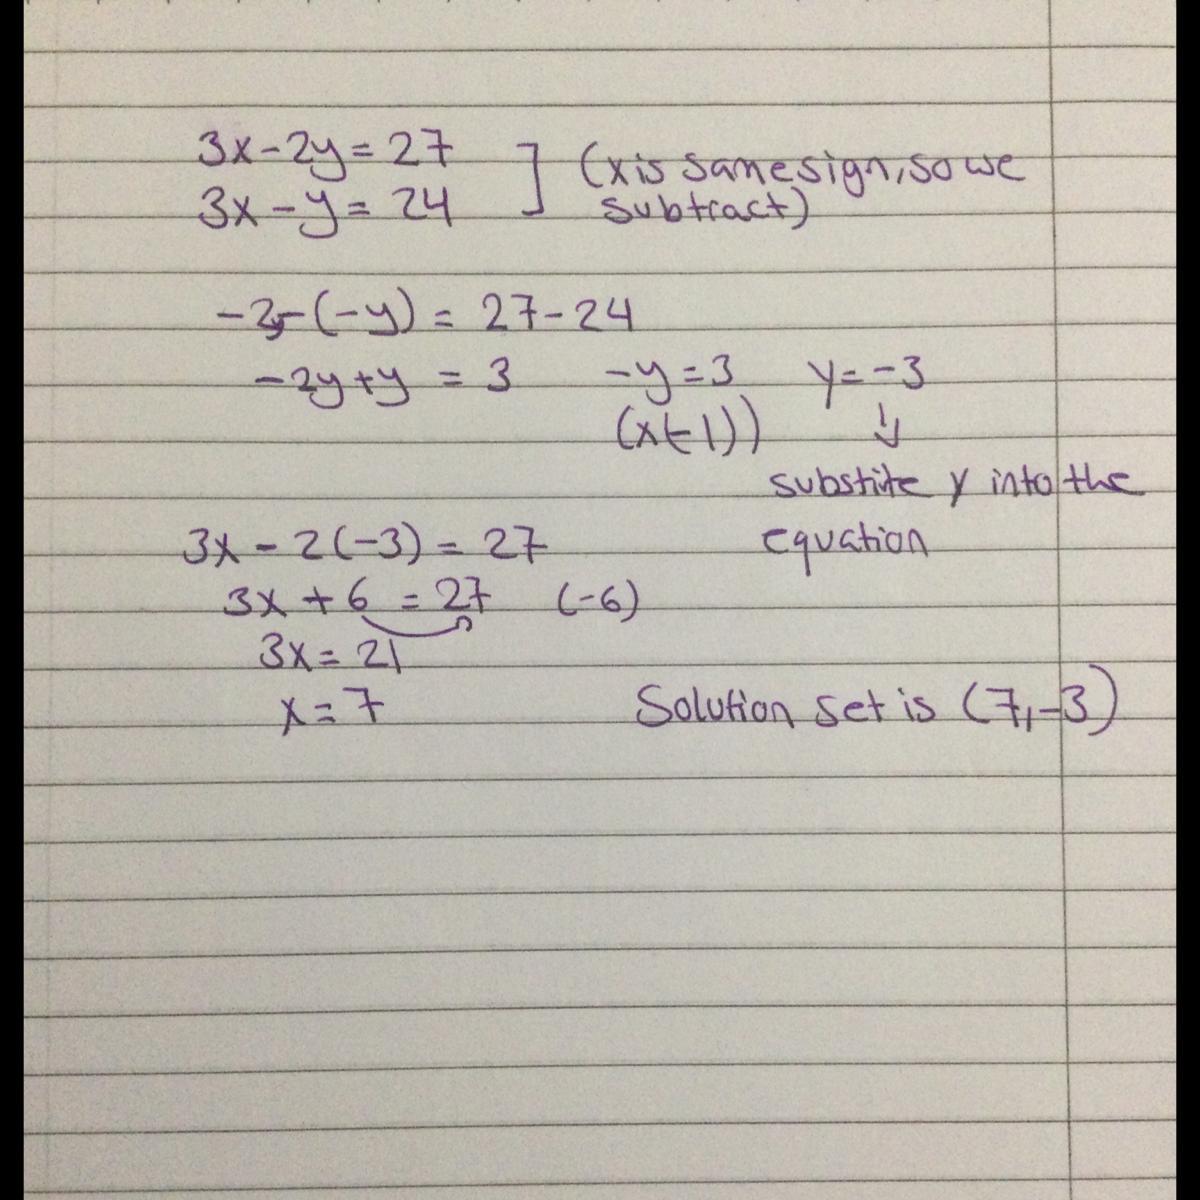 3x-2y=27
3x-y=24
] (x is same sign, so we
subtract)
-2y-(-y) = 27-24
-2y+y = 3 -y=3 y=-3
(x(-1))
substite y into the
equation
3x-2(-3)=27
3x+6=27 (-6)
3x=21
x=7 Solution set is (7,-3)